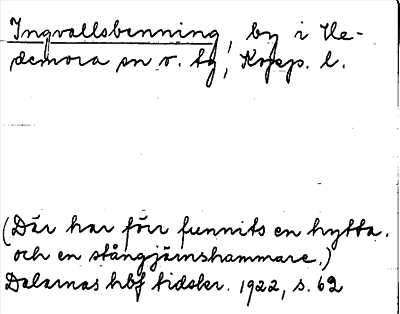 Ingvallsbenning, by i He-
demora sn o. tg, Kopp. l.
(Där har förr funnits en hytta.
och en stångjärnshammare.)
Dalarnas hbf tidskr. 1922, s. 62